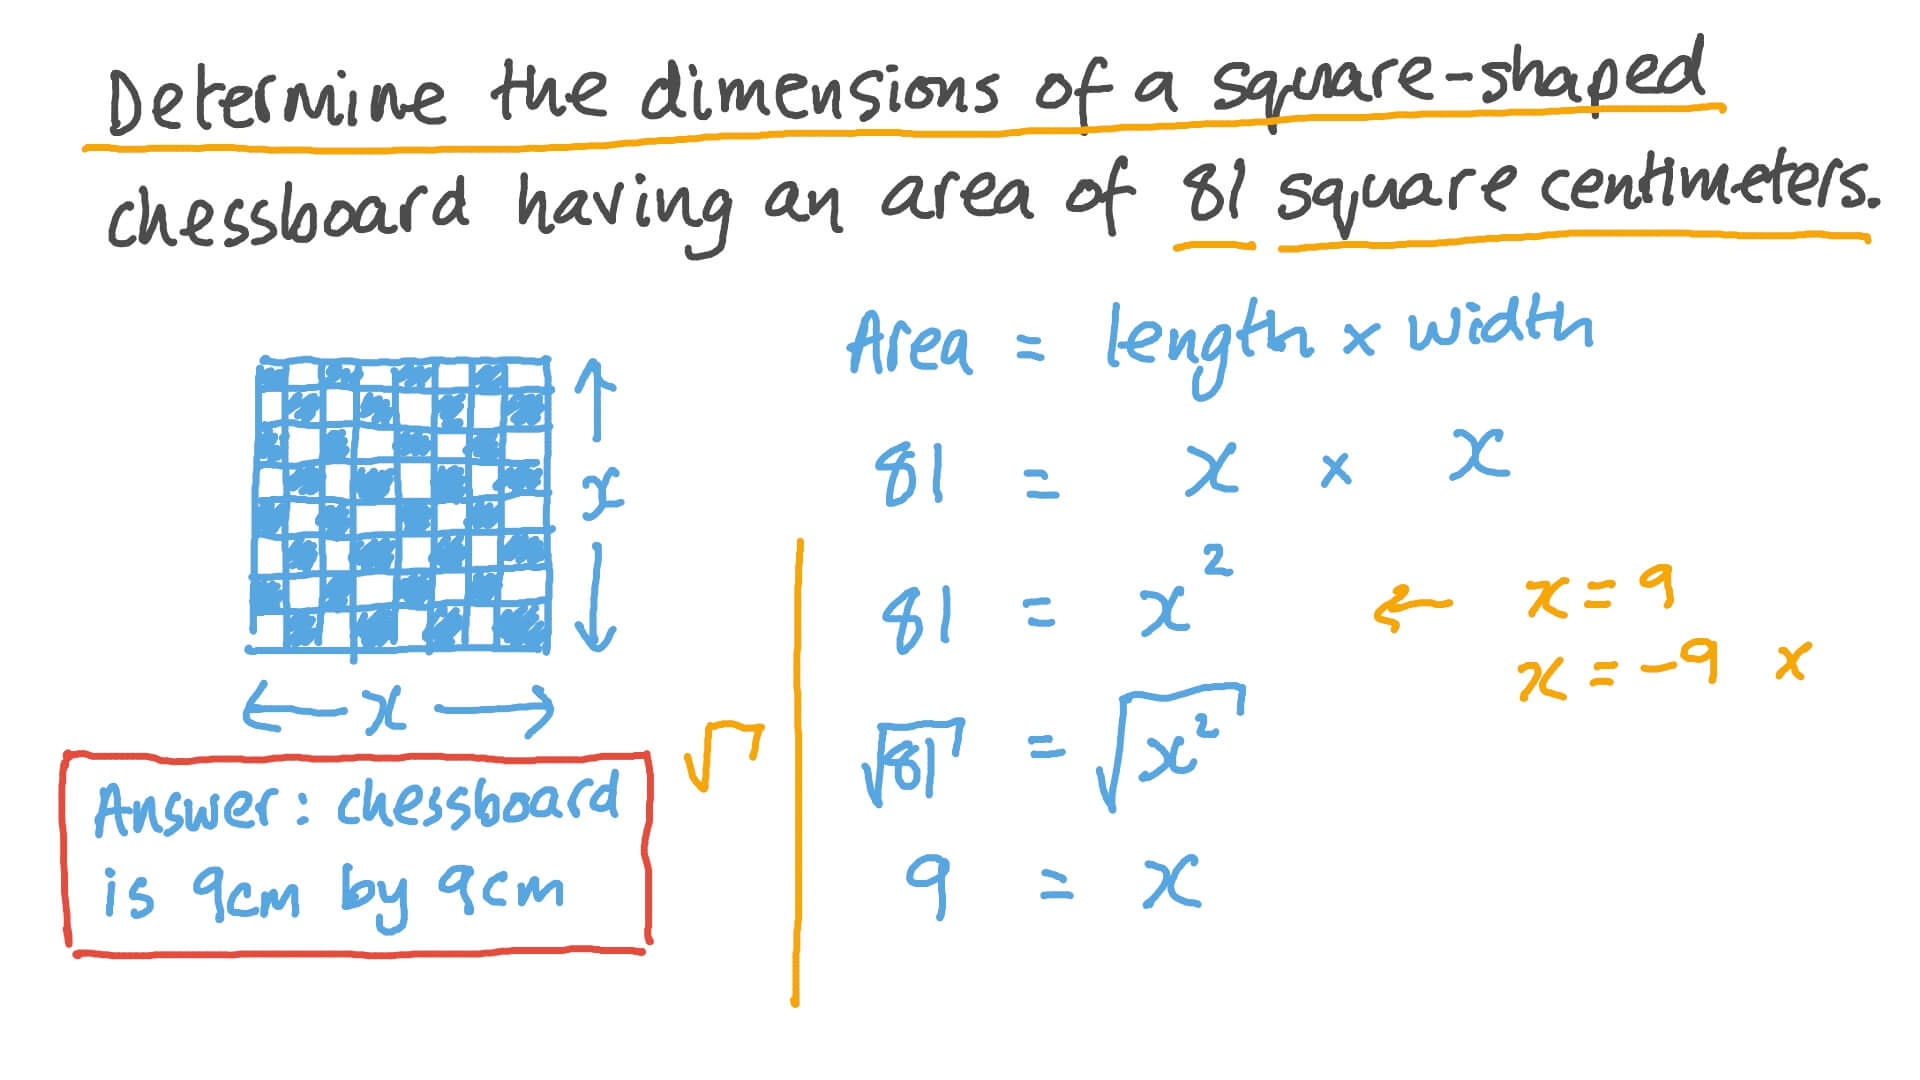 Determine the dimensions of a square-shaped
chessboard having an area of 81 square centimeters.
Area = length x width
81 = x x x
81 = x²
x = 9
x = -9 x
√81 = √x²
9 = x
x
x
√
Answer: chessboard
is 9cm by 9cm